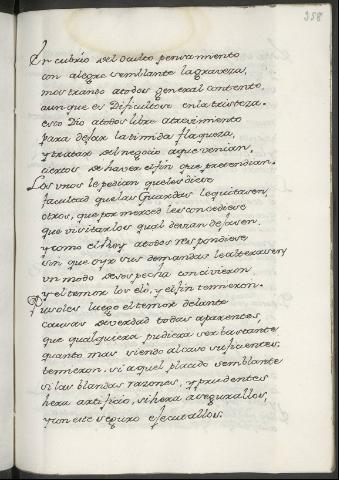 358
Encubrio del oculto pensamiento
con alegre semblante la graveza,
mostrando a todos general contento,
aunque es Dificultoso en la tristeza.
esto Dio a todos libre atrevimiento
para dejar la timida flaqueza,
y tratar del negocio a que venian,
ciertos de haver el fin que pretendian.
Los unos le pedian que les diese
facultad que las Guardas le quitasen,
otros, que por merced les concediese
que visitarlos qual devian dejasen.
y como el Rey a todos respondiese
sin que oyr sus demandas le alterasen,
un modo de sospecha concivieron,
y el temor los eló, y el fin temieron.
Pusoles luego el temor delante
causas de verdad todas aparentes,
que qualquiera pudiera ser bastante
quanto mas viendo al caso suficientes.
temieron. si aquel placido semblante
si las blandas razones, y prudentes
hera artificio, si hera asegurallos,
y con este seguro ejecutallos.